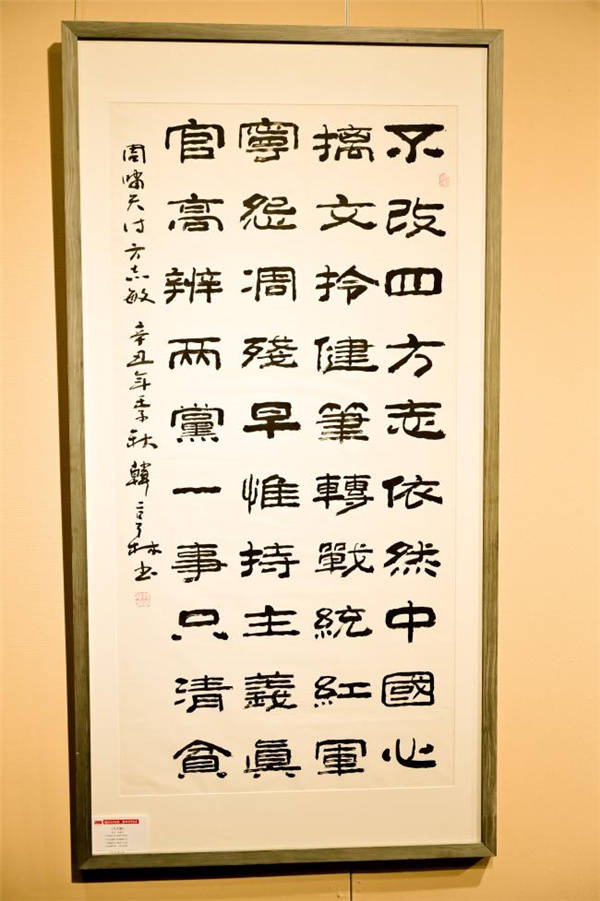 不改四方志依然中國心
摛文拎健筆轉戰統紅軍
寧怨凋殘早惟持主義眞
官高辨兩黨一事只清貧
周啸天诗方志敏 辛丑年秋 韓亨林书